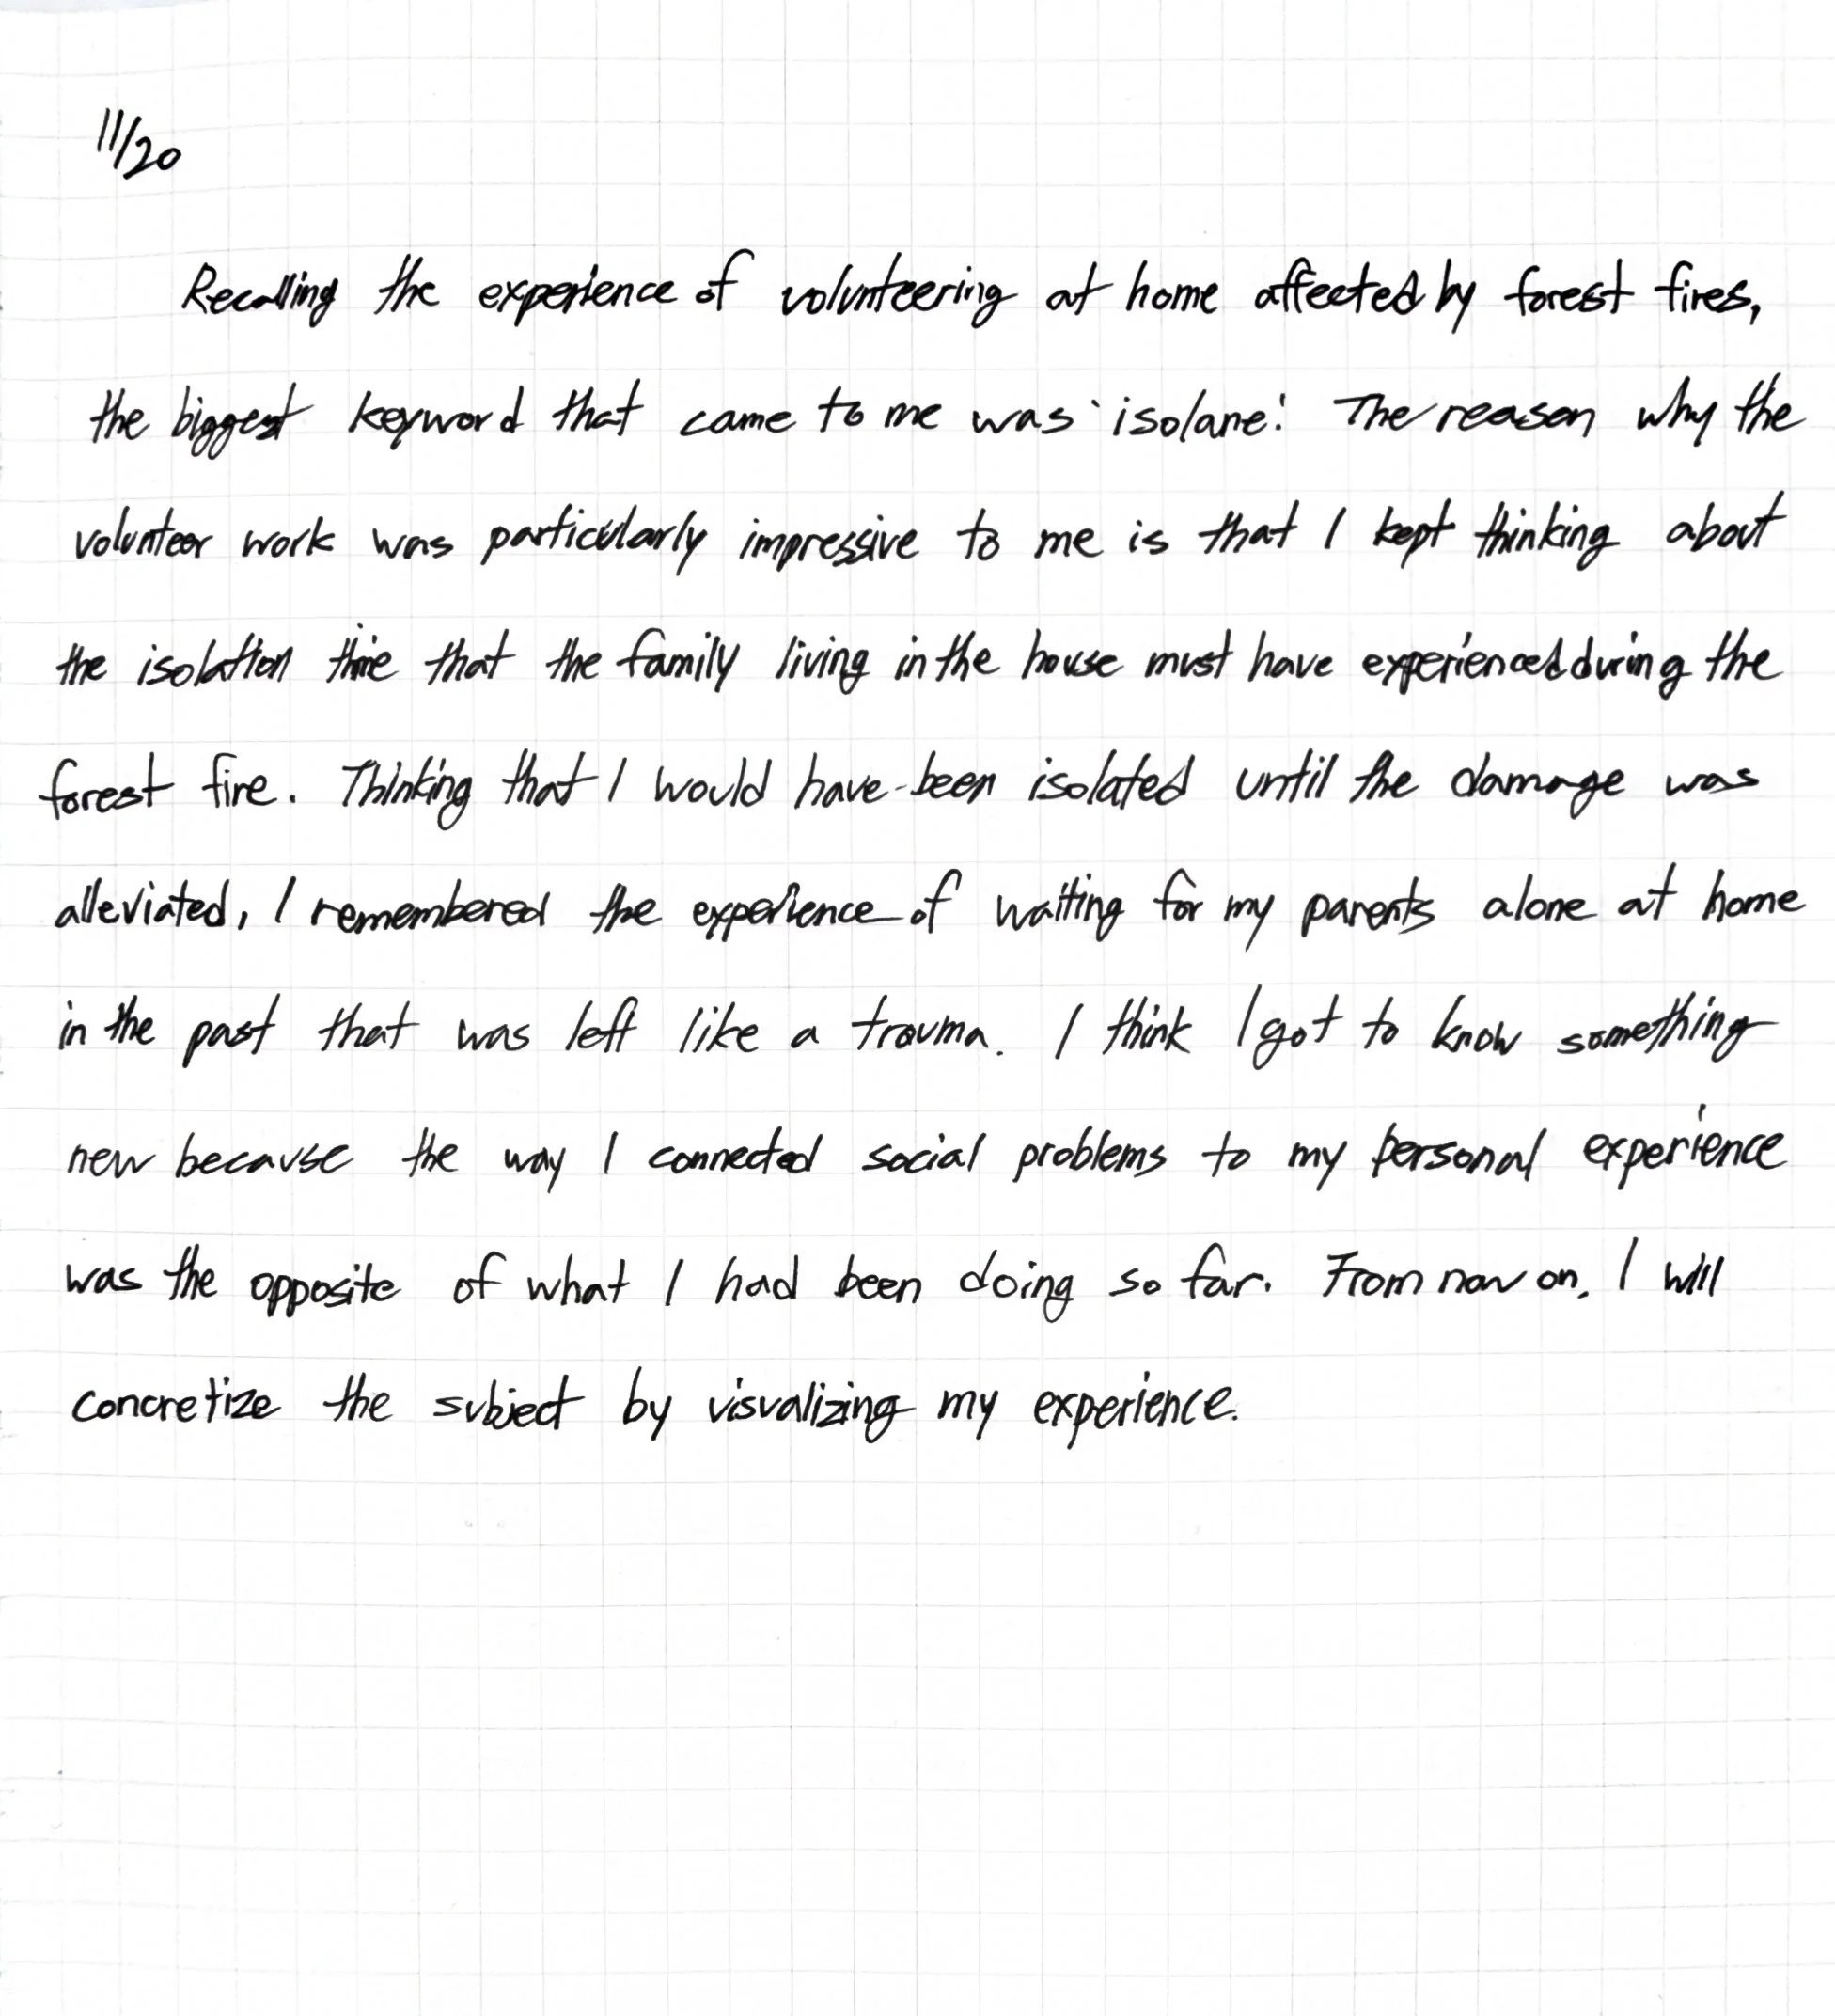 11/20
Recalling the experience of volunteering at home affected by forest fires,
the biggest keyword that came to me was 'isolane'. The reason why the
volunteer work was particularly impressive to me is that I kept thinking about
the isolation time that the family living in the house must have experienced during the
forest fire. Thinking that I would have been isolated until the damage was
alleviated, I remembered the experience of waiting for my parents alone at home
in the past that was left like a trauma. I think I got to know something
new because the way I connected social problems to my personal experience
was the opposite of what I had been doing so far. From now on, I will
concretize the subject by visualizing my experience.